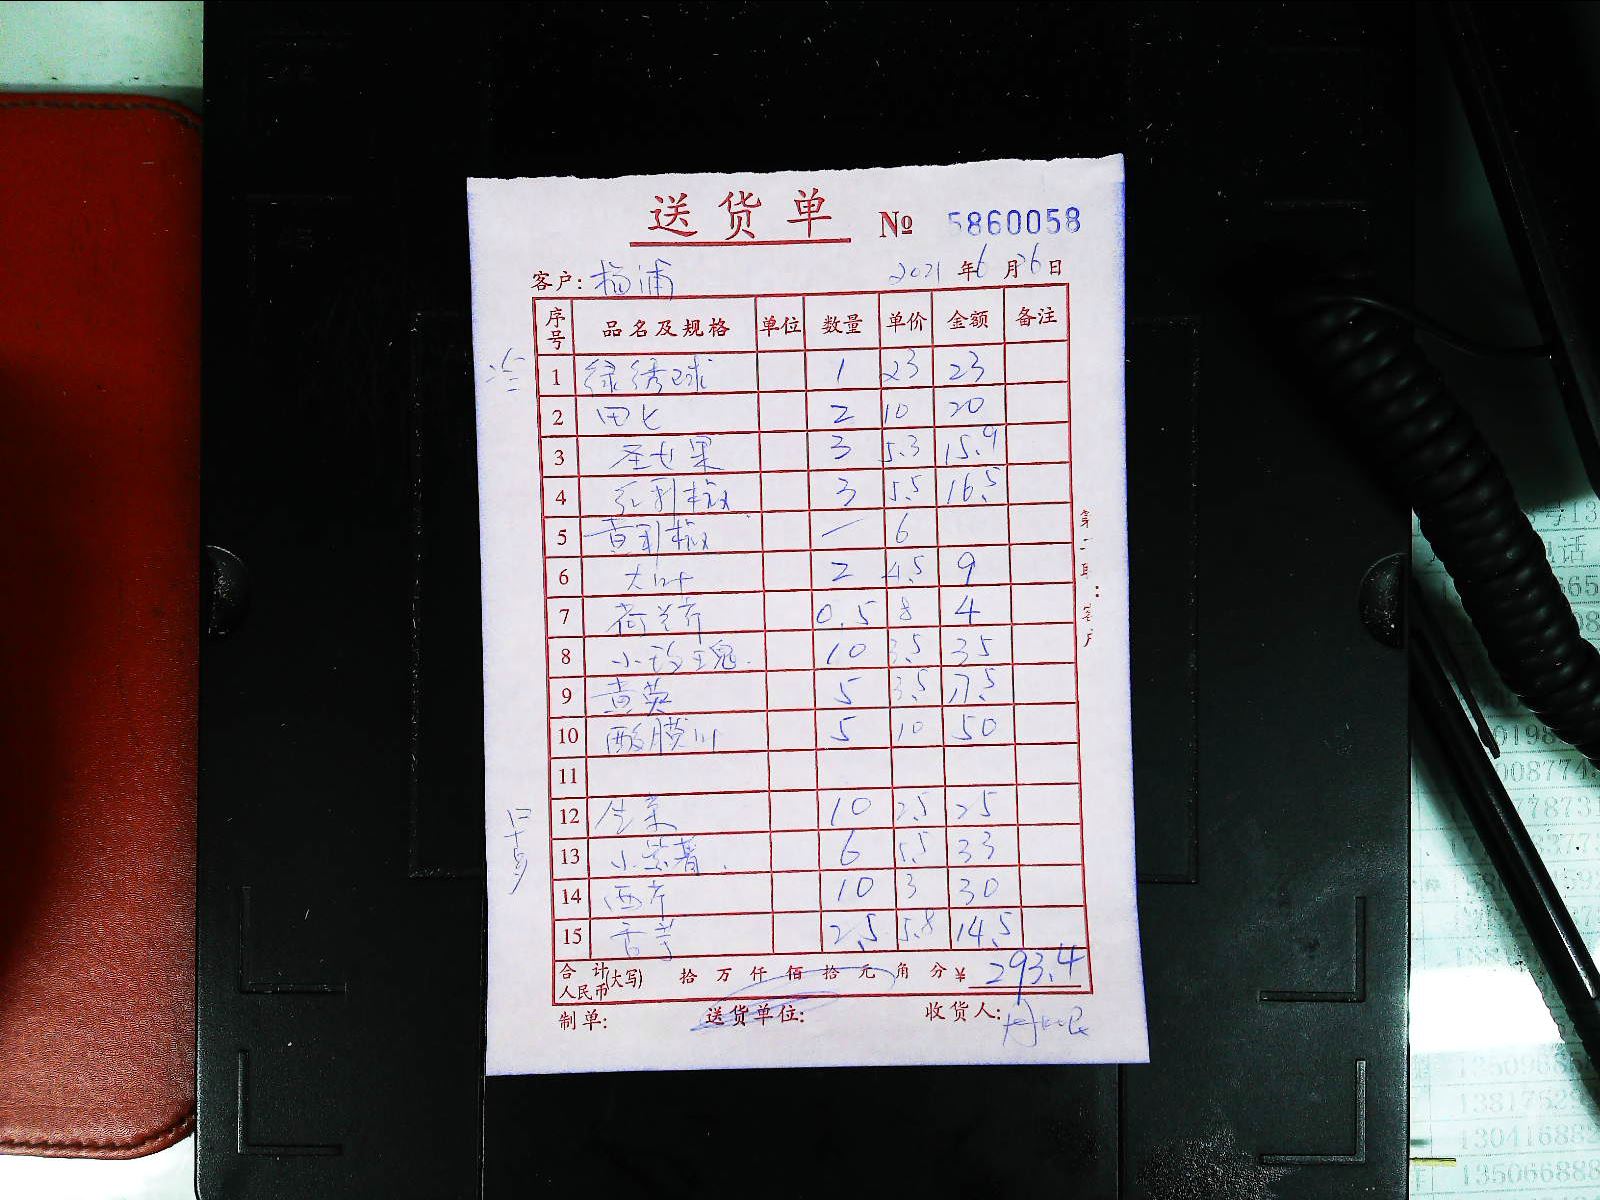 送货单 № 5860058
客户: 杨浦 2021 年 6 月 26 日
序号 品名及规格 单位 数量 单价 金额 备注
1 绿绣球 1 23 23
2 田七 2 10 20
3 圣女果 3 5.3 15.9
4 红利椒 3 5.5 16.5
5 黄利椒 — 6
6 大叶 2 4.5 9
7 荷兰芹 0.5 8 4
8 小玫瑰 10 3.5 35
9 黄英 5 3.5 17.5
10 酸膜叶 5 10 50
11
12 生菜 10 2.5 25
13 小紫薯 6 5.5 33
14 西芹 10 3 30
15 香芋 2.5 5.8 14.5
合计人民币(大写) 拾 万 仟 佰 拾 元 角 分 ¥ 293.4
制单: 送货单位: 收货人:
第二联:客户